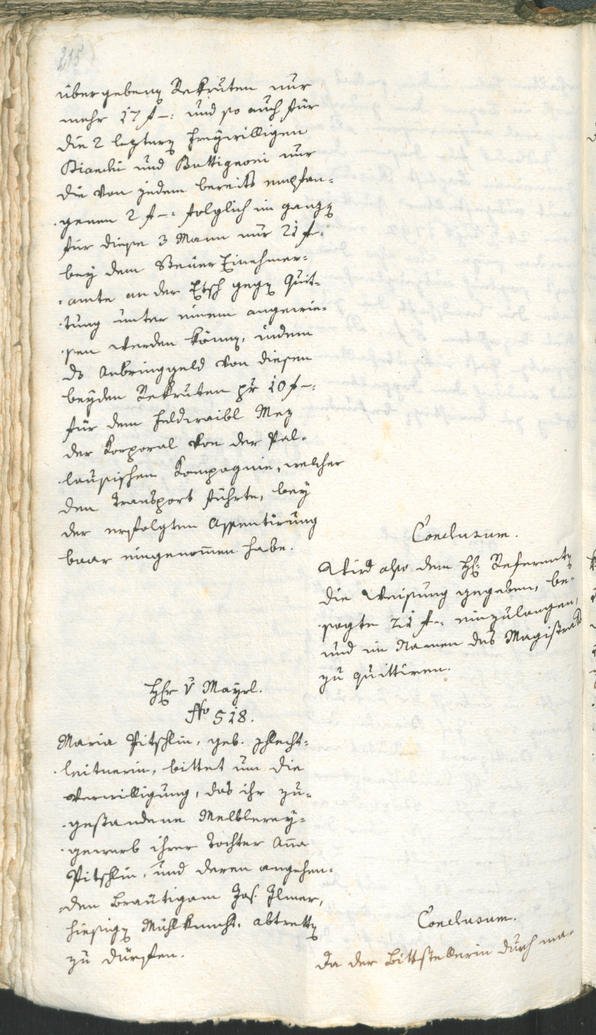 215
übergebenen Rekruten nur
mehr 17 f –: und so auch für
die 2 leztern freywilligen
Bianchi und Battigeoni nur
die von jedem bereits empfan-
genen 2 f –: folglich im ganzen
für diese 3 Mann nur 21 f:
bey dem Steuer Einehmer-
amte an der Etsch gegen Quit-
tung unter einem angewie-
sen werden könne, indem
ds Anbringgeld von diesen
beyden Rekruten pr 10 f –:
für dem Feldwaibl Mez
der Korporal von der Pal-
lausischen Kompagnie, welcher
den Transport führte, bey
der erfolgten Assentirung
baar eingenommen habe.
Conclusum.
Wird also dem Hh: Referenten
die Weisung gegeben, be-
sagte 21 f –: einzulangen,
und im Namen des Magistrats
zu quittiren.
Hhr v Mayrl.
No 518.
Maria Pitschlin, geb. Schlecht-
leitnerin, bittet um die
Verwilligung, das ihr zu-
gestandene Melblerey-
gewerb ihrer Tochter Anna
Pitschlin, und deren angehen-
den Bräutigam Jos. Ilmer,
hiesigen Mühlknecht, abtretten
zu dürfen.
Conclusum.
Da der Bittstellerin durch ma-